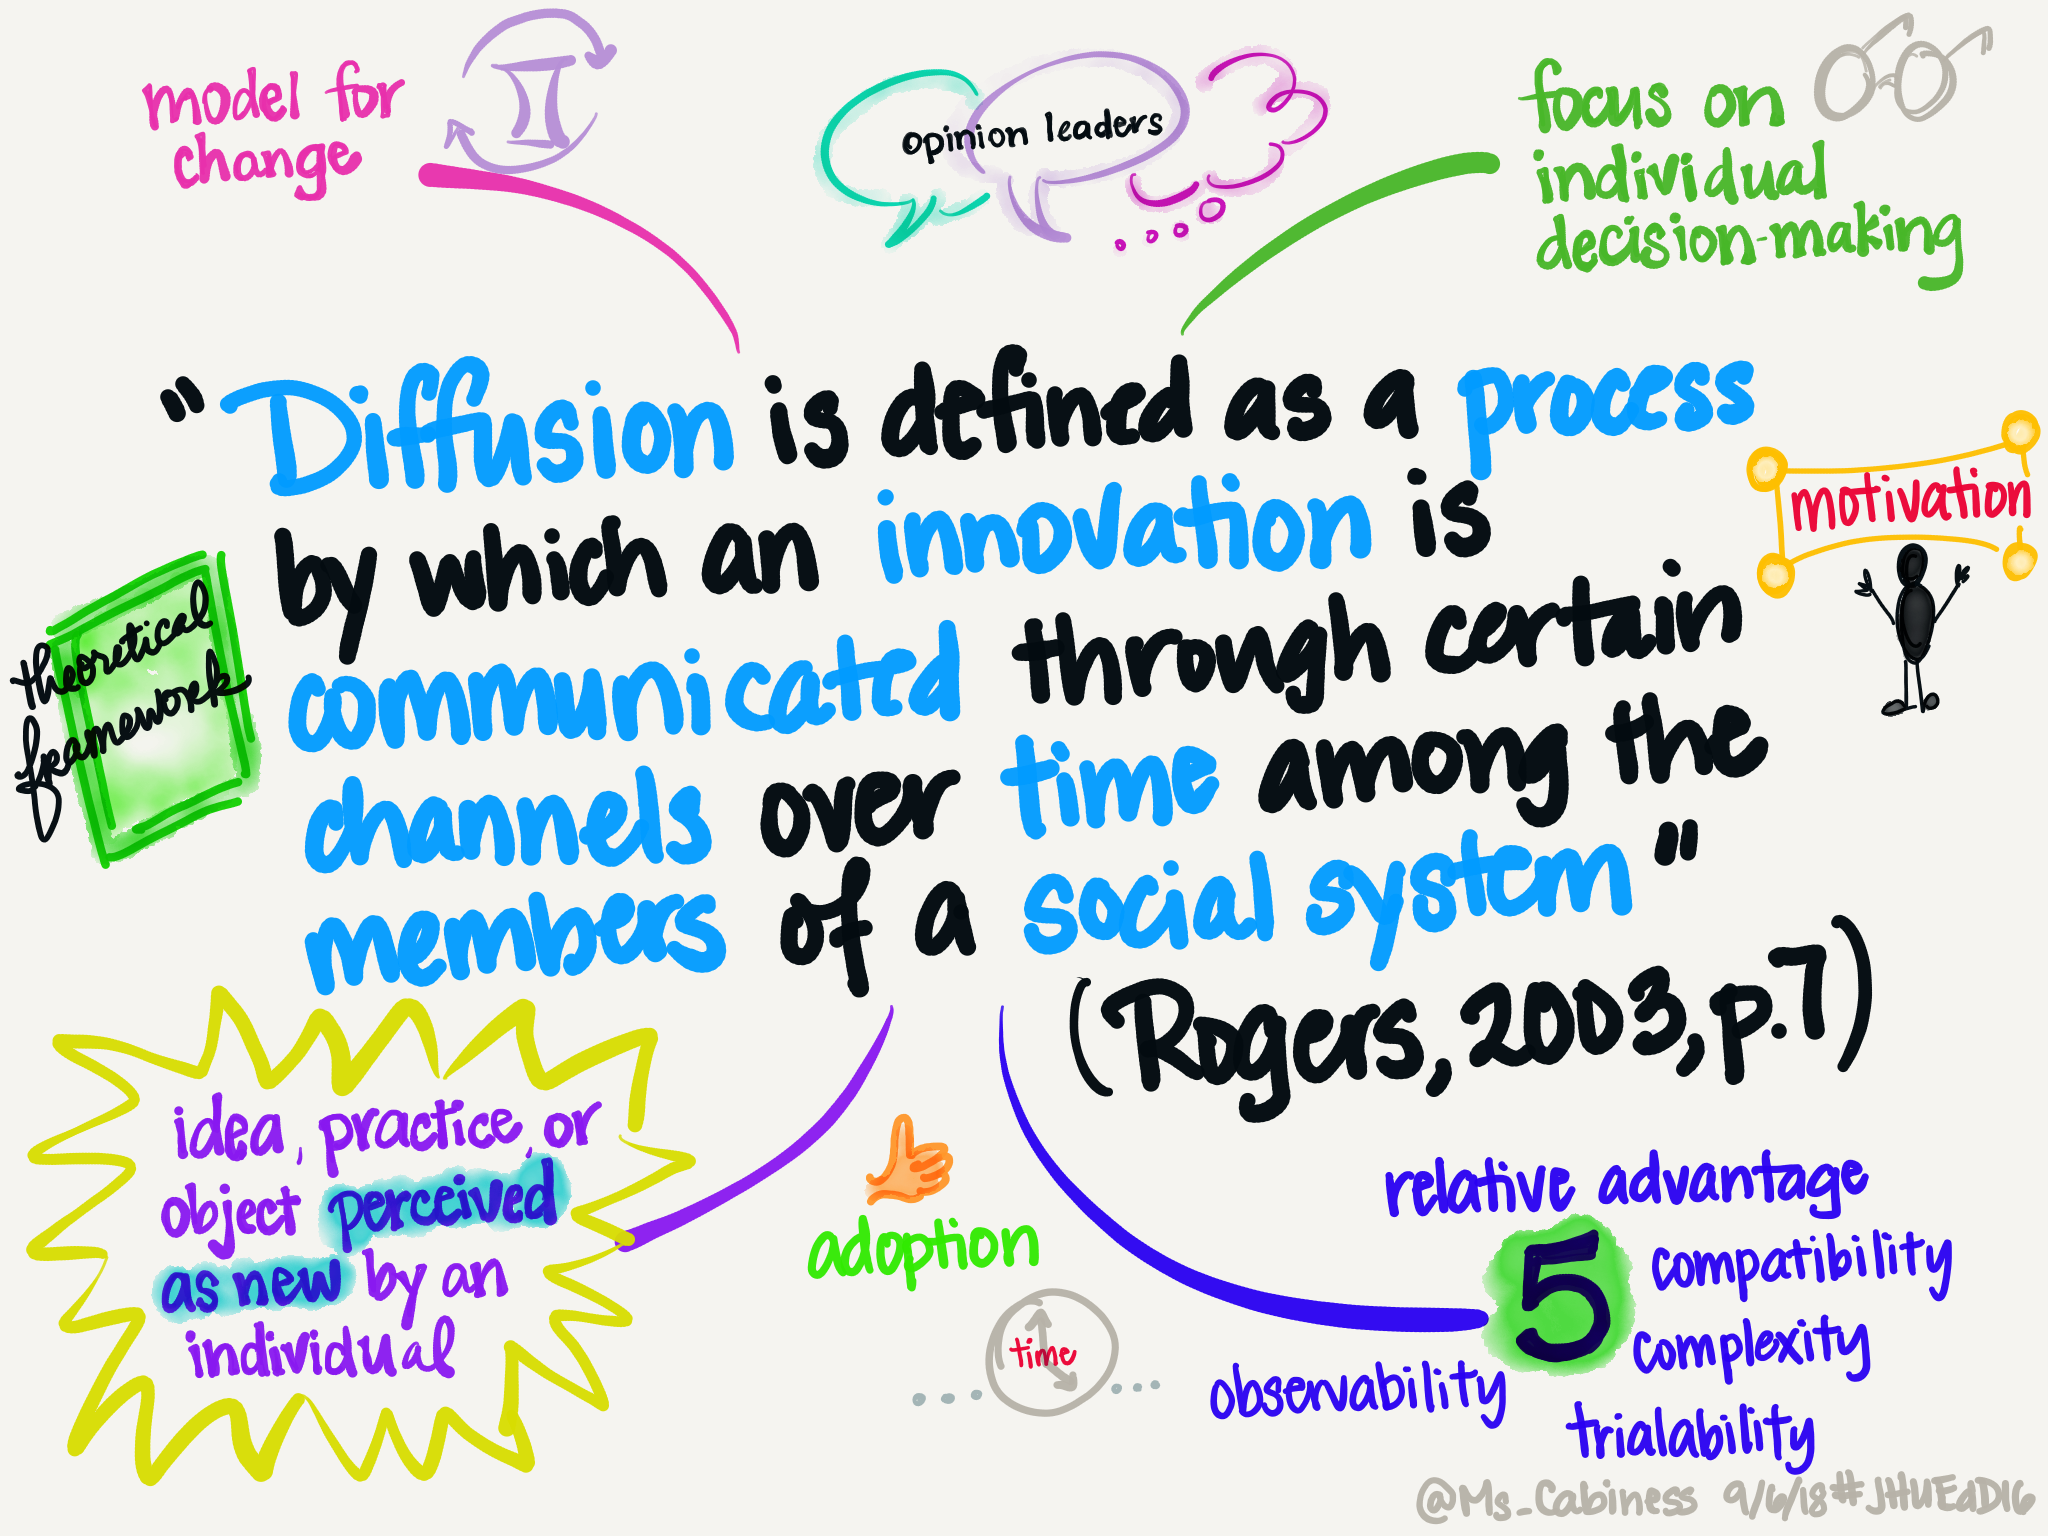 model for
change
opinion leaders
focus on
individual
decision-making
"Diffusion is defined as a process
by which an innovation is
communicated through certain
channels over time among the
members of a social system"
(Rogers, 2003, p.7)
motivation
theoretical
framework
idea, practice, or
object perceived
as new by an
individual
adoption
time
relative advantage
5
compatibility
complexity
observability
trialability
@Ms_Cabiness 9/6/18 #JHUEdD16